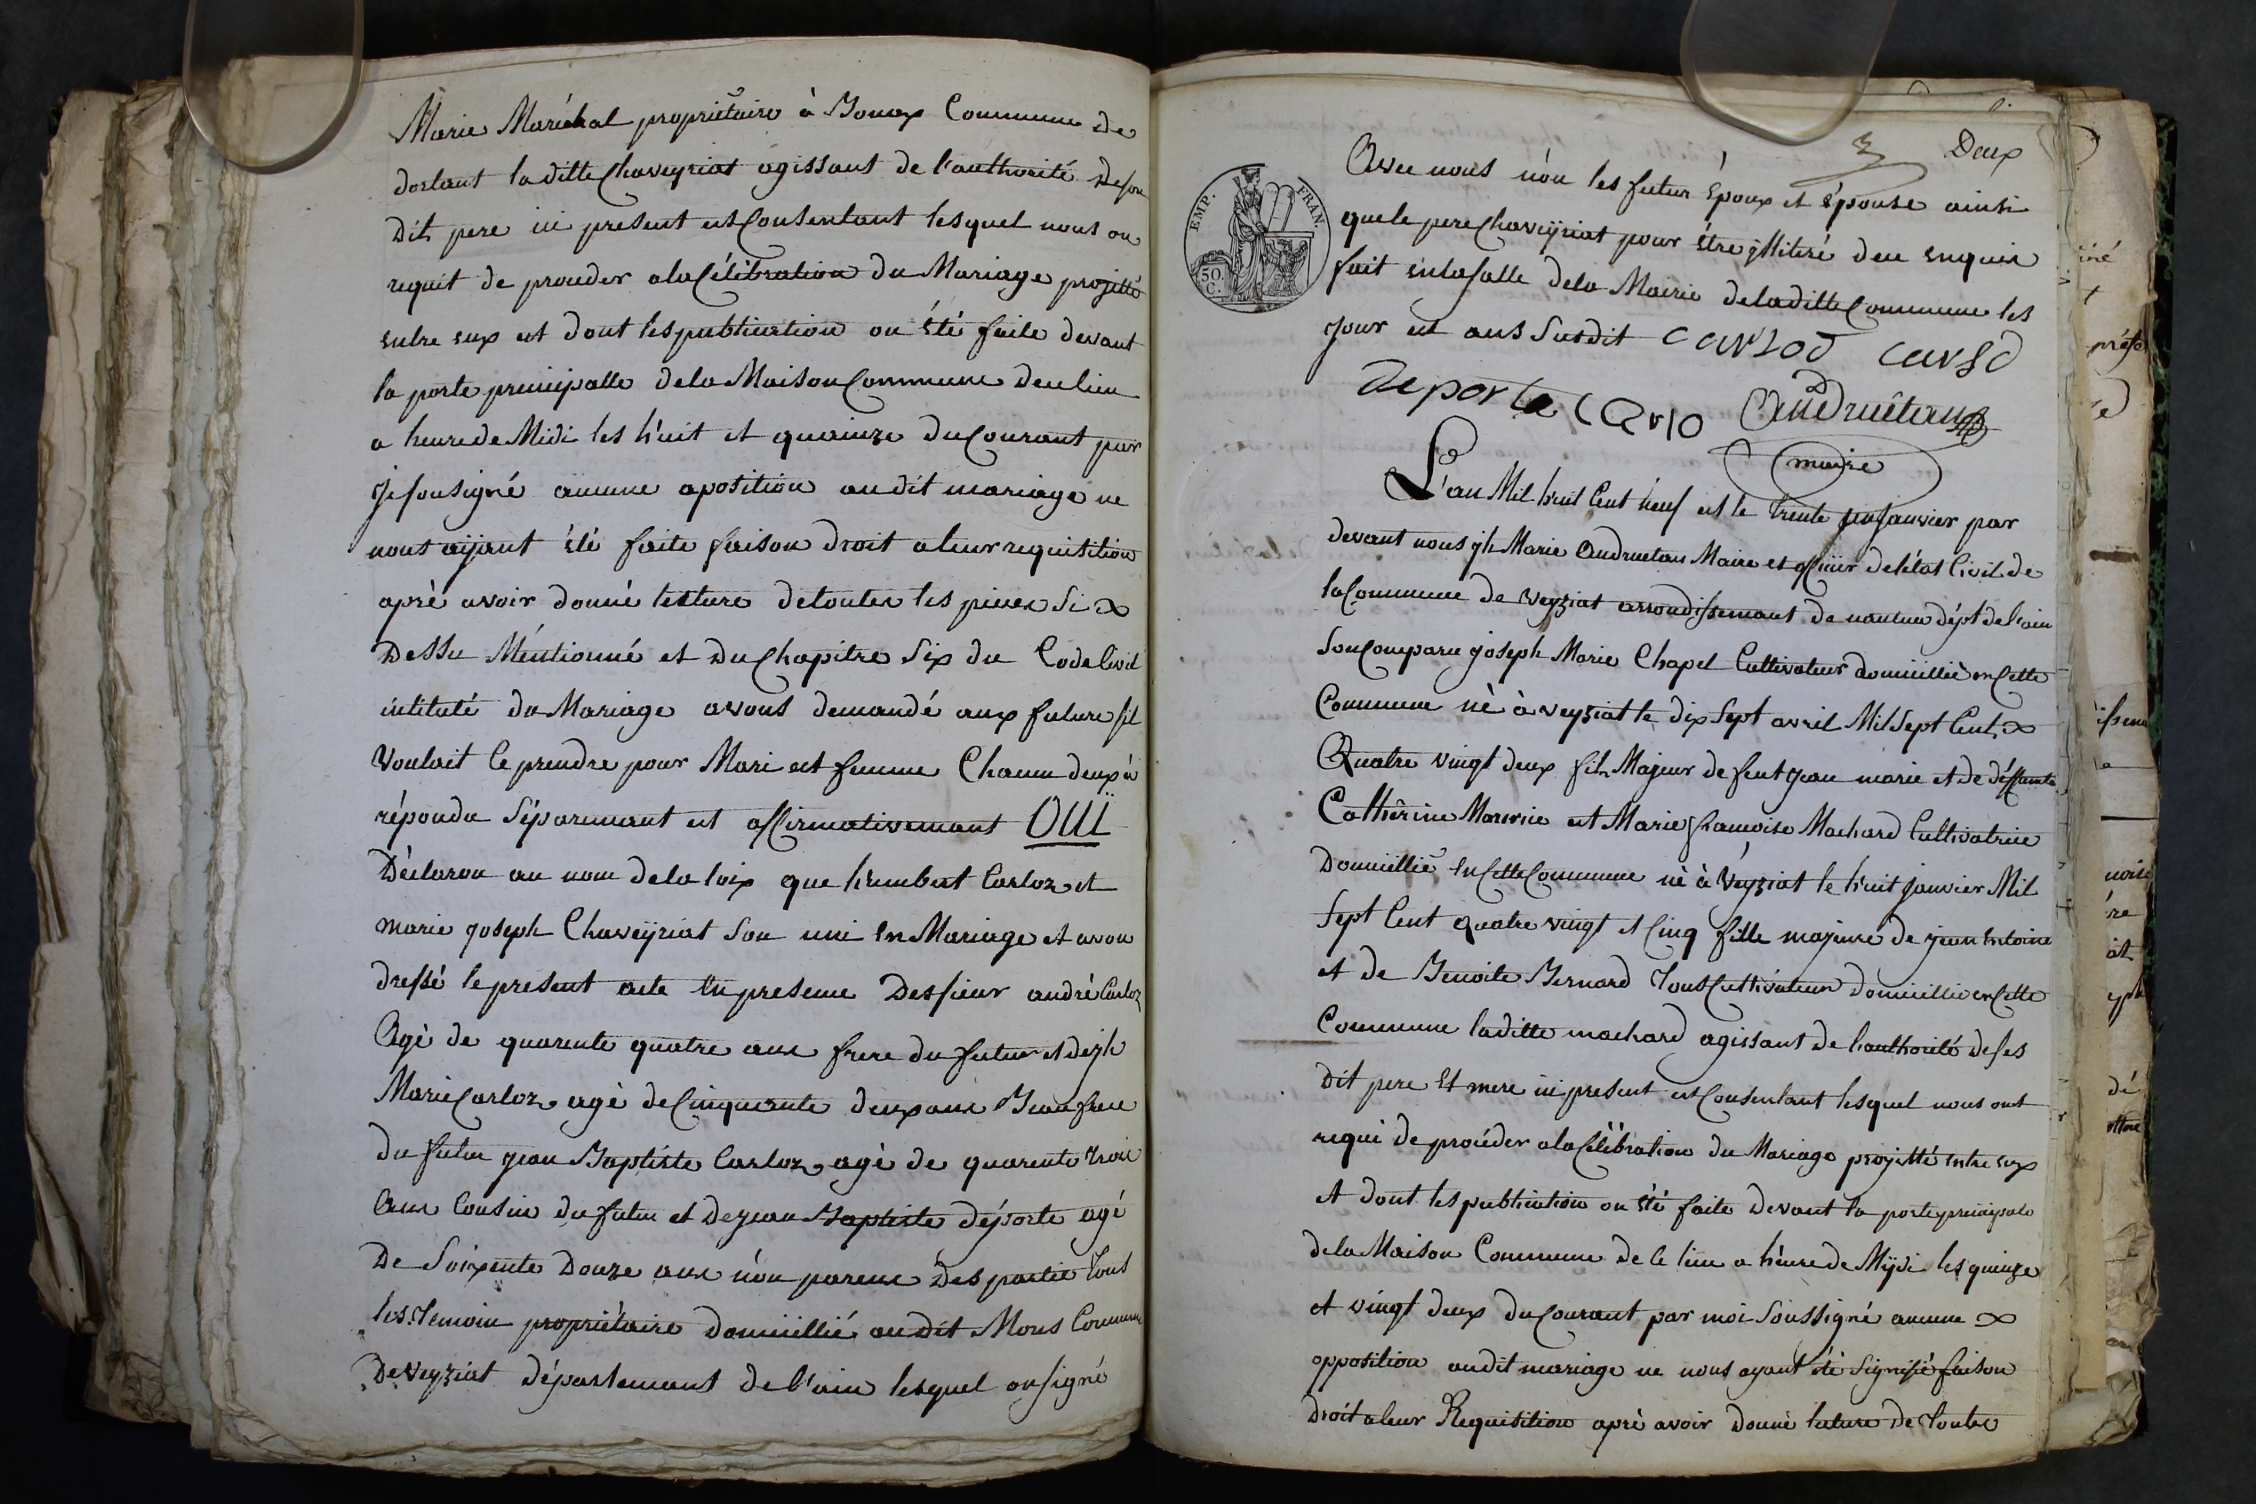 Marie Maréchal propriétaire à Bouox Commune de
dortant la ditte Chaveyriat agissant de l'authorité de son
Dit pere ici present est Consentant lesquel nous on
requit de proceder a la Célébration du Mariage projetté
entre eux et dont les publication on été faite devant
la porte principalle de la Maison Commune de ce lieu
a heure de Midi les h'uit et quainze du Courant par
Je sousigné aucune aposition au dit mariage ne
nous aÿant été faite faison droit a leur requisition
aprè avoir donné lecture de toutes les pieces si
Dessu Méntionné et du Chapitre Six du Code Civil
intitulé du Mariage avons demandé aux future s'il
voulait ce prendre pour Mari est femme Chacun deux à
répondu Séparemant est affirmativemant OUI
Déclaron au nom de la loix que h'umbert Carloz et
marie joseph Chaveÿriat son uni en Mariage et avon
dressé le present acte en presence des sieur andré Carloz
agè de quarente quatre ans frere du futur et de jh
Marie Carloz agè de Cinquante deux ans Beau frere
du futur jean Baptiste Carloz agè de quarente trois
ans Cousin du futur et de jean Baptiste déporte agé
De Soixente Douze ans nón parens des partie tous
les temoin propriétaire domicillié au dit Mons Commune
De veyziat départemant de l'ain lesquel on signé
Deux
Avec nous nón les futur Époux et épouse ainsi
que le pere Chaveÿriat pour être illiteré de ce enquis
fait en la salle de la Mairie de la ditte Commune les
jour et ans Susdit carlod carlo
deporte carlo Andruétan
maire
EMP. FRAN.
50. C.
L'an Mil huit Cent neuf est le trente un janvier par
devant nous jh Marie Andruetan Maire et officier de l'état Civil de
la Commune de veyziat arrondissemant de nantua dépt de l'ain
son Comparu joseph Marie Chapel Cultivateur domicillié en Cette
Commune nè à veyziat le dix Sept avril Mil Sept Cent
Quatre vingt deux fils Majeur de feut jean marie et de déffunte
Cathérine et Marie françoise Machard Cultivatrice
Domicillié en Cette Commune nè à Veyziat le h'uit janvier Mil
Sept Cent quatre vingt et Cinq fille majeure de jean antoine
et de Benoite Bernard tous Cultivateur domicillié en Cette
Commune la ditte machard agissant de l'authorité de ses
Dit pere et mere ici present est Consentant lesquel nous ont
requi de procéder a la Célébration du Mariage projetté entre eux
et dont les publication on été faite devant la porte principale
de la Maison Commune de ce lieu a héure de Mÿdi les quinze
et vingt deux du Courant par moi soussigné aucune
opposition au dit mariage ne nous ayant été signifié faison
Droit a leur Requisition aprè avoir donné lecture de toutes